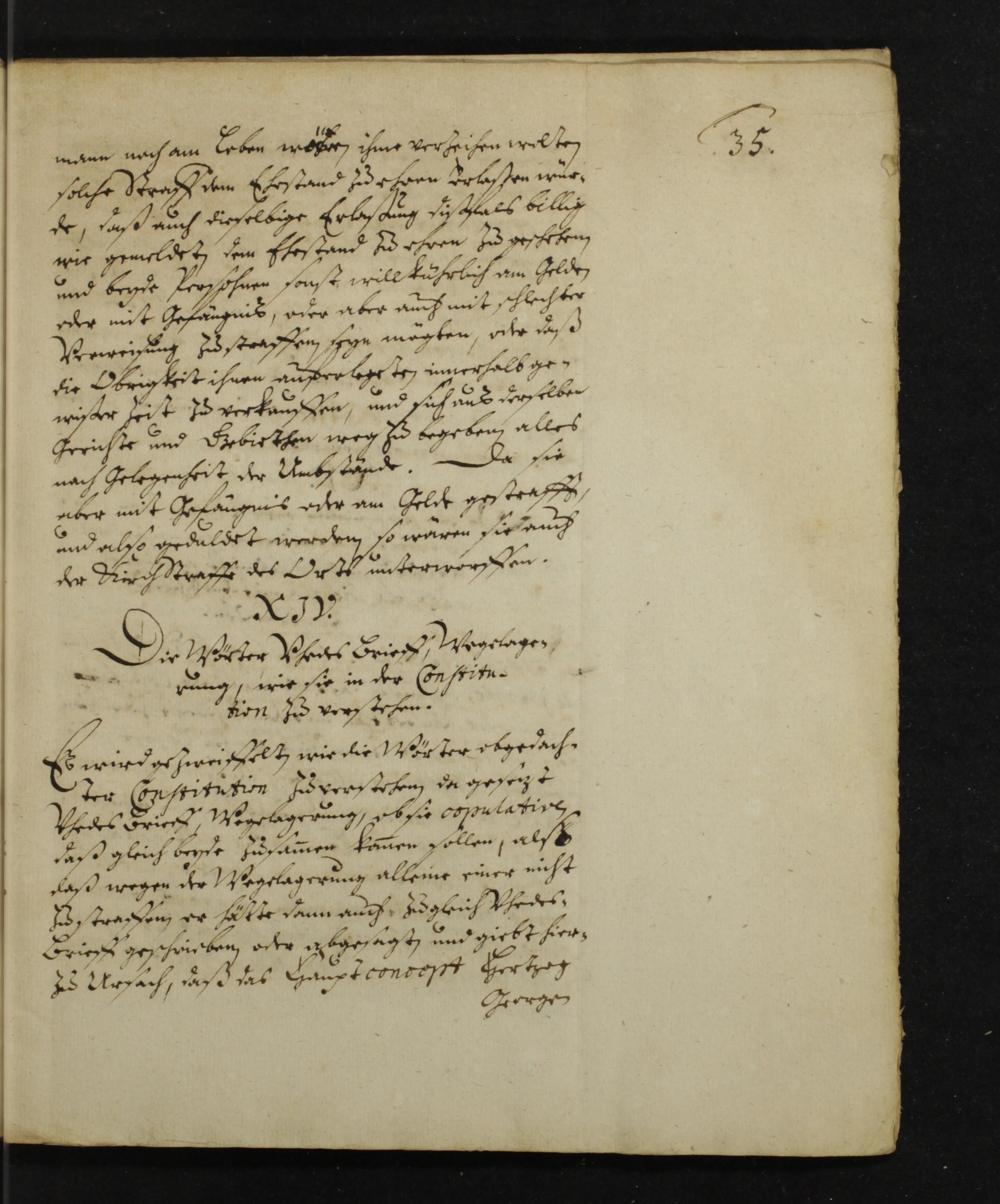 35.
mann noch am Leben wären ihme verzeihen wolten
solche Straff dem Ehestand zu ehren erlaßen wür-
de, daß auch dieselbige Erlaßung dißfals billig
wie gemeldet, dem Ehestand zu ehren zu geschehen,
und beyde Persohnen sonst willkührlich am Gelde,
oder mit Gefängnis, oder aber auch mit schlechter
Verweisung zu straffen seyn mögten, oder daß
die Obrigkeit ihnen aufferlegeten innerhalb ge-
wißer Zeit zu verkauffen, und sich aus derselben
Gerichte und Gebiethen weg zu begeben, alles
nach Gelegenheit der Umbstände. Da sie
aber mit Gefängnis oder am Gelde gestrafft,
und also geduldet werden, so wären sie auch
der Kirch Straffe des Orts unterworffen.
XIV.
Die Wörter Vhedes Brieff, Wegelage-
rung, wie sie in der Constitu-
tion zu verstehen.
Es wird gezweiffelt, wie die Wörter obgedach-
ter Constitution zu verstehen, da gesezt
Vhedes Brieff, Wegelagerung, ob sie copulative,
daß gleich beyde zusam̅en kom̅en sollen, alß
daß wegen der Wegelagerung alleine einer nicht
zu straffen, er hätte dann auch zugleich Vhedes-
Brieff geschrieben, oder abgesagt, und giebt hier-
zu Ursach, daß das Haupt concept Hertzog
Georgen